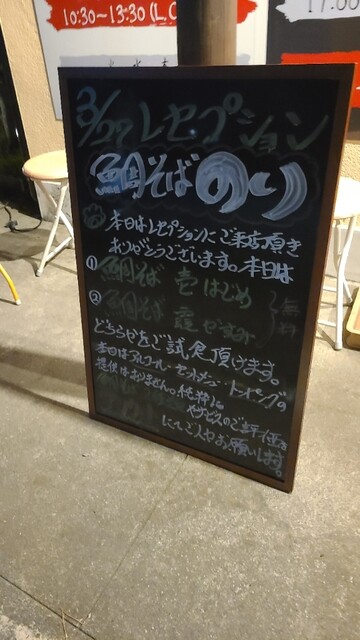 10:30〜13:30(L.O
17:00
3/27 レセプション
鯛そば のり
本日はレセプションにご来店頂き
ありがとうございます。本日は
① 鯛そば 壱 はじめ
② 鯛そば 霞 かすみ
無料
どちらかをご試食頂けます。
本日はアルコール・セットメシ・トッピングの
提供はありません。純粋に
サービスのご評価を
にてご入やお願いします。